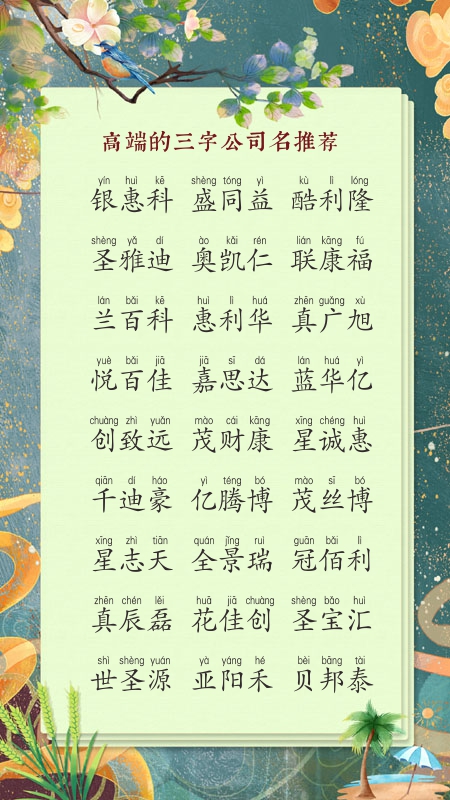 高端的三字公司名推荐
yín huì kē shèng tóng yì kù lì lóng
银惠科 盛同益 酷利隆
shèng yǎ dí ào kǎi rén lián kāng fú
圣雅迪 奥凯仁 联康福
lán bǎi kē huì lì huá zhēn guǎng xù
兰百科 惠利华 真广旭
yuè bǎi jiā jiā sī dá lán huá yì
悦百佳 嘉思达 蓝华亿
chuàng zhì yuǎn mào cái kāng xīng chéng huì
创致远 茂财康 星诚惠
qiān dí háo yì téng bó mào sī bó
千迪豪 亿腾博 茂丝博
xīng zhì tiān quán jǐng ruì guān bǎi lì
星志天 全景瑞 冠佰利
zhēn chén lěi huā jiā chuàng shèng bǎo huì
真辰磊 花佳创 圣宝汇
shì shèng yuán yà yáng hé bèi bāng tài
世圣源 亚阳禾 贝邦泰